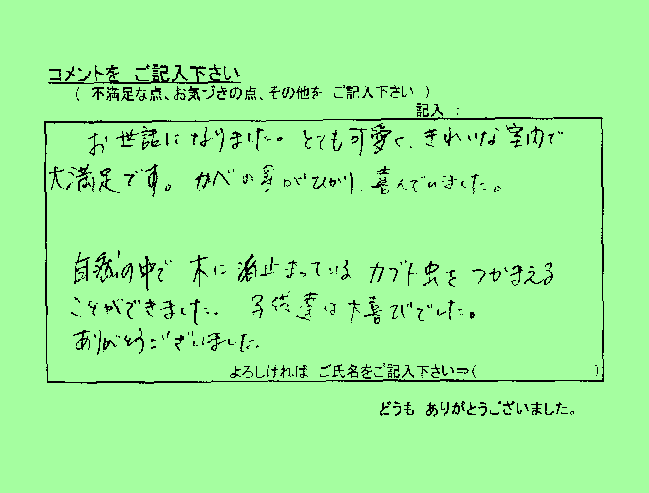 コメントを ご記入下さい
( 不満足な点、お気づきの点、その他を ご記入下さい )
記入 :
お世話になりました。とても可愛く、きれいな室内で
大満足です。カベの がひかり、喜んでいました。
自然の中で 木に 止まっている カブト虫を つかまえる
ことができました。子供達は大喜びでした。
ありがとうございました。
よろしければ ご氏名をご記入下さい⇒( )
どうも ありがとうございました。